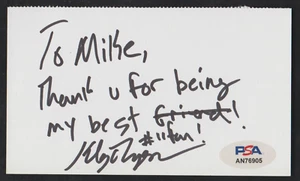 To Mike,
Thank u for being
my best friend!
#11 fan!
PSA
AN76905